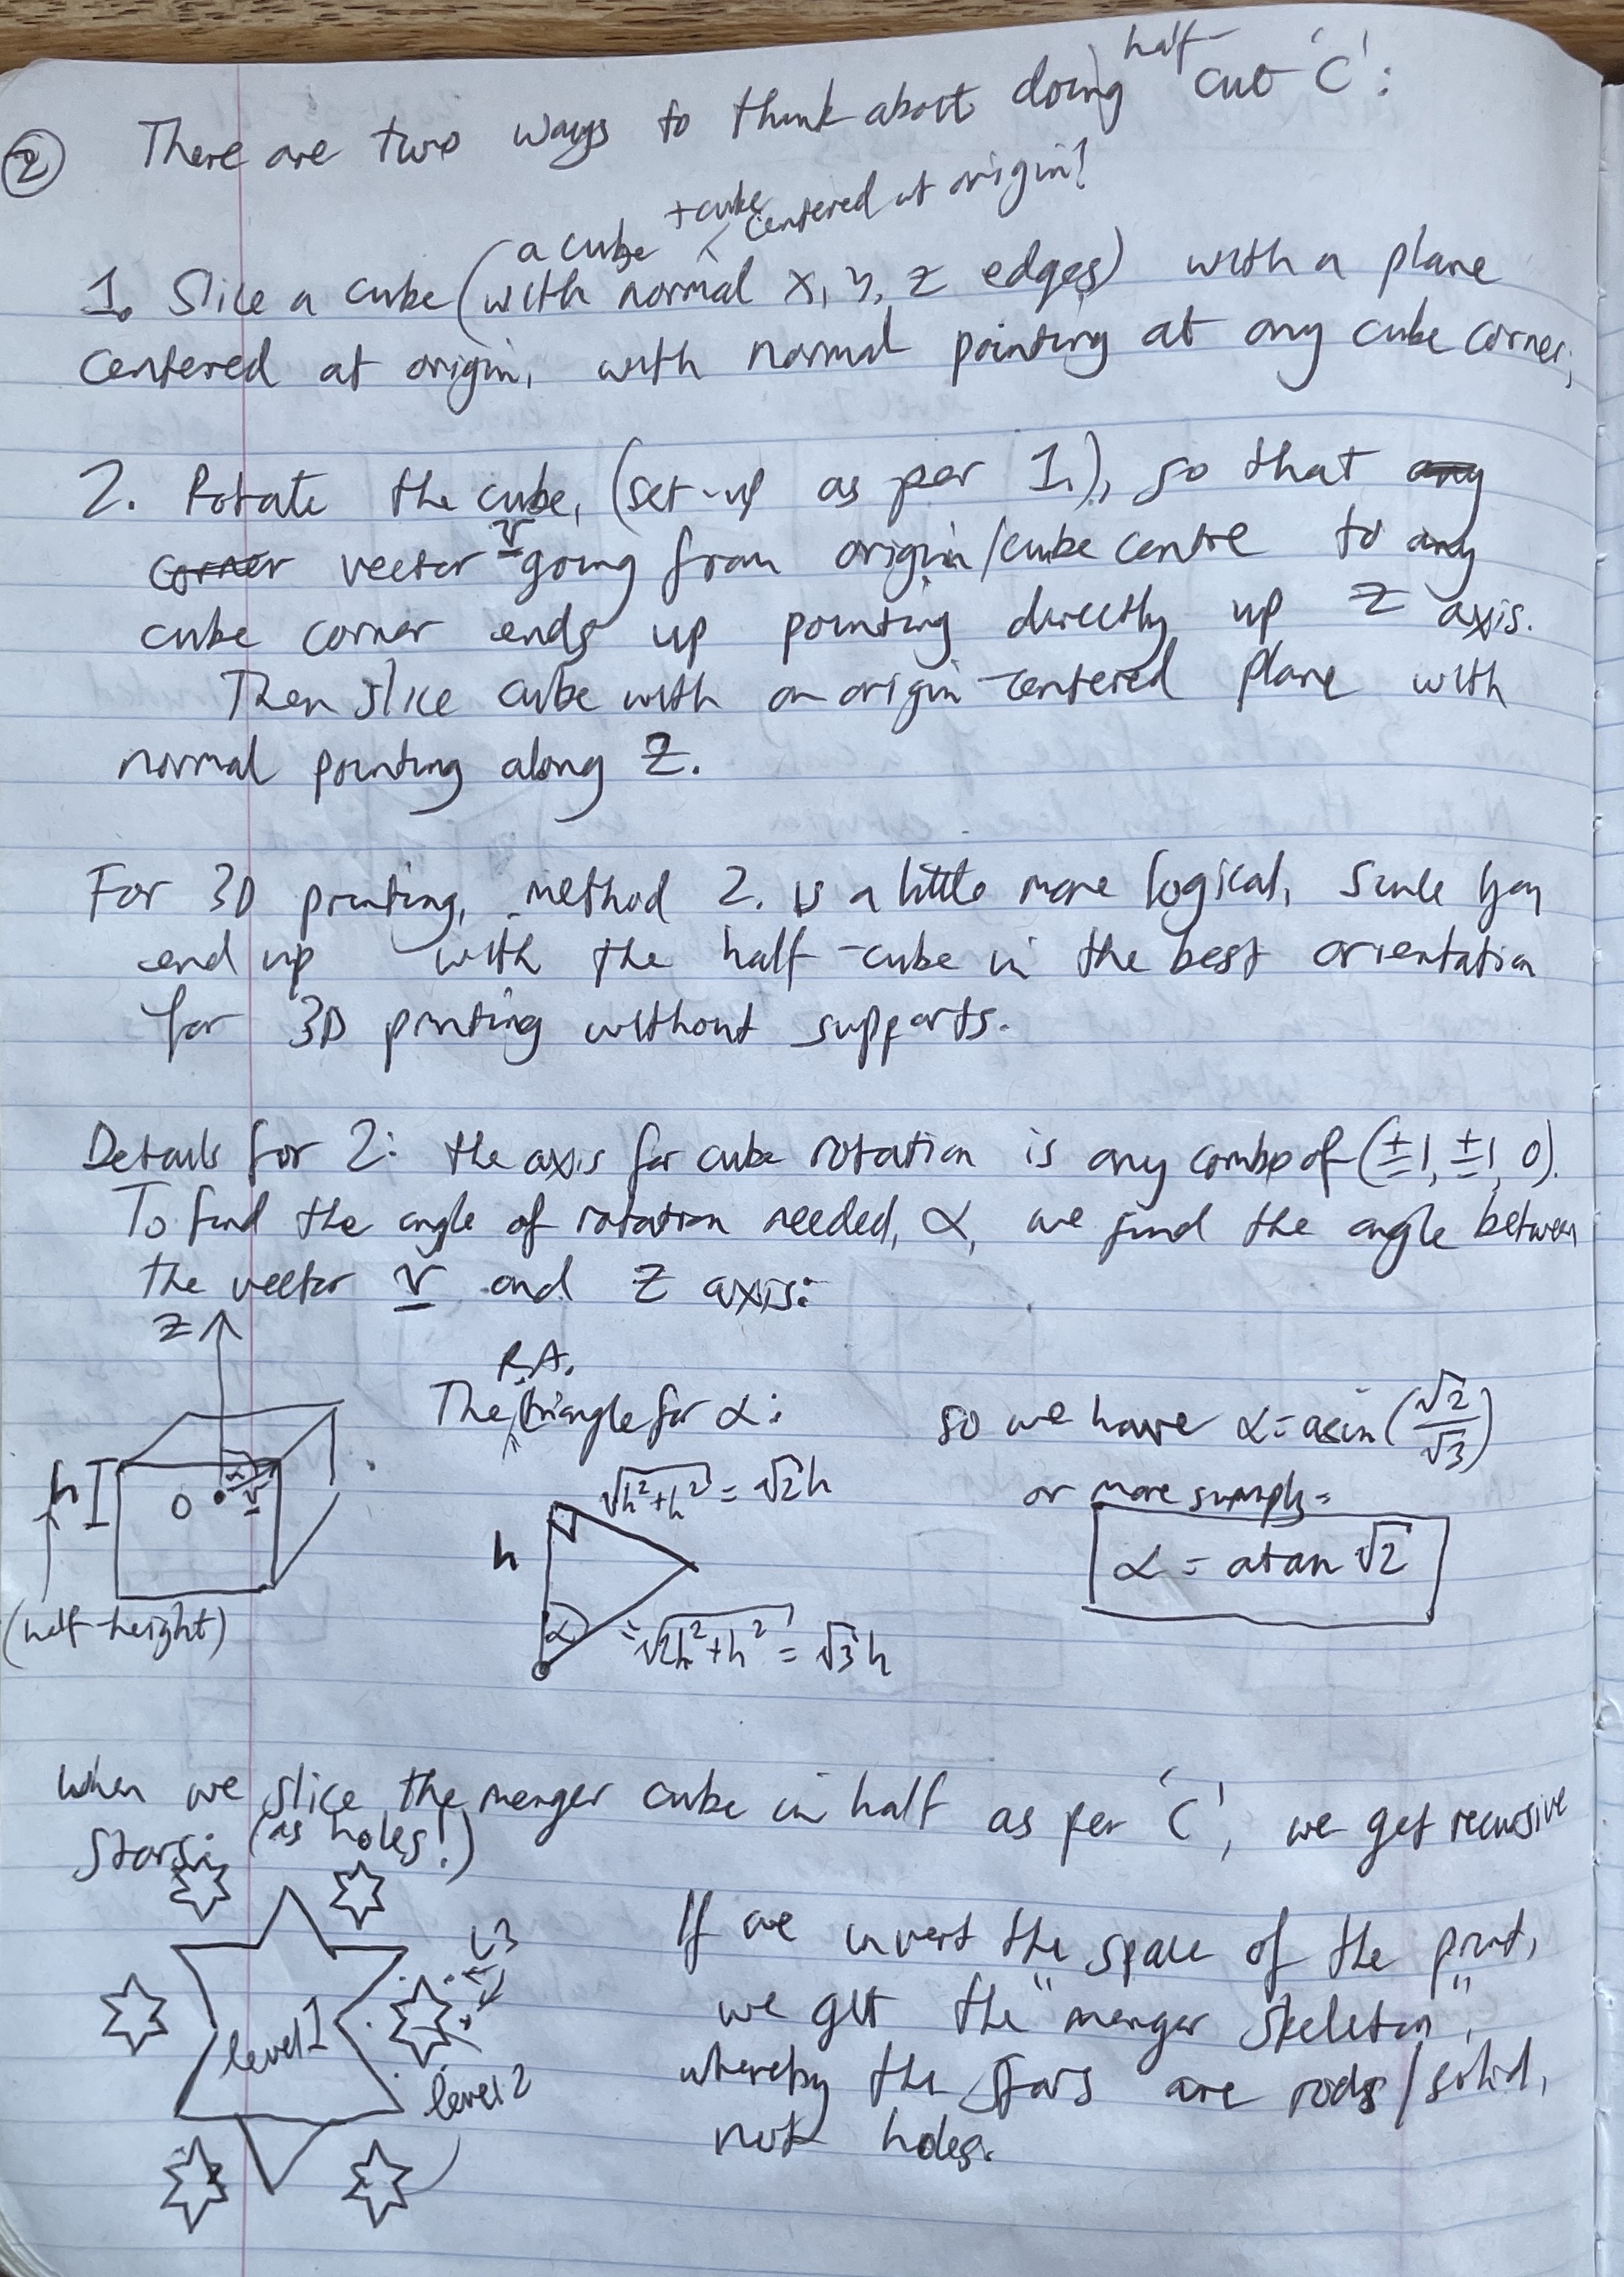 ② There are two ways to think about doing half cut 'C':
1. Slice a cube (a cube with normal x, y, z edges) + cube centered at origin? with a plane
centered at origin, with normal pointing at any cube corner;
2. Rotate the cube, (set-up as per 1.), so that any
corner vector v going from origin/cube centre to any
cube corner ends up pointing directly up z axis.
Then slice cube with an origin-centered plane with
normal pointing along z.
For 3D printing, method 2. is a little more logical, since you
end up with the half-cube in the best orientation
for 3D printing without supports.
Details for 2: the axis for cube rotation is any combo of (±1, ±1, 0).
To find the angle of rotation needed, α, we find the angle between
the vector v and z axis:
z
h
O
α
v
(half-height)
The R.A. triangle for α:
√h²+h² = √2h
h
α
= √2h²+h² = √3h
so we have α = asin(√2/√3)
or more simply =
α = atan √2
When we slice the menger cube in half as per 'C', we get recursive
stars: (as holes!)
L3
level 1
level 2
If we invert the space of the print,
we get the "menger skeleton",
whereby the stars are rods/solid,
not holes.